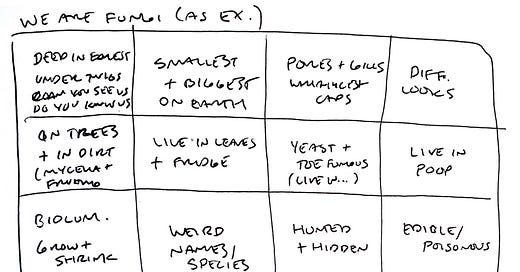 WE ARE FUNGI (AS EX.)
DEEP IN FOREST
UNDER TWIGS
CAN YOU SEE US
DO YOU KNOW US
SMALLEST
+ BIGGEST
ON EARTH
PORES + GILLS
WHIMSICAL
CAPS
DIFF.
LOOKS
ON TREES
+ IN DIRT
(MYCELIA +
FRUITING
LIVE IN LEAVES
+ FRIDGE
YEAST +
TOE FUNGUS
(LIVE IN...)
LIVE IN
POOP
BIOLUM.
GROW +
SHRINK
WEIRD
NAMES/
SPECIES
HUNTED
+ HIDDEN
EDIBLE/
POISONOUS